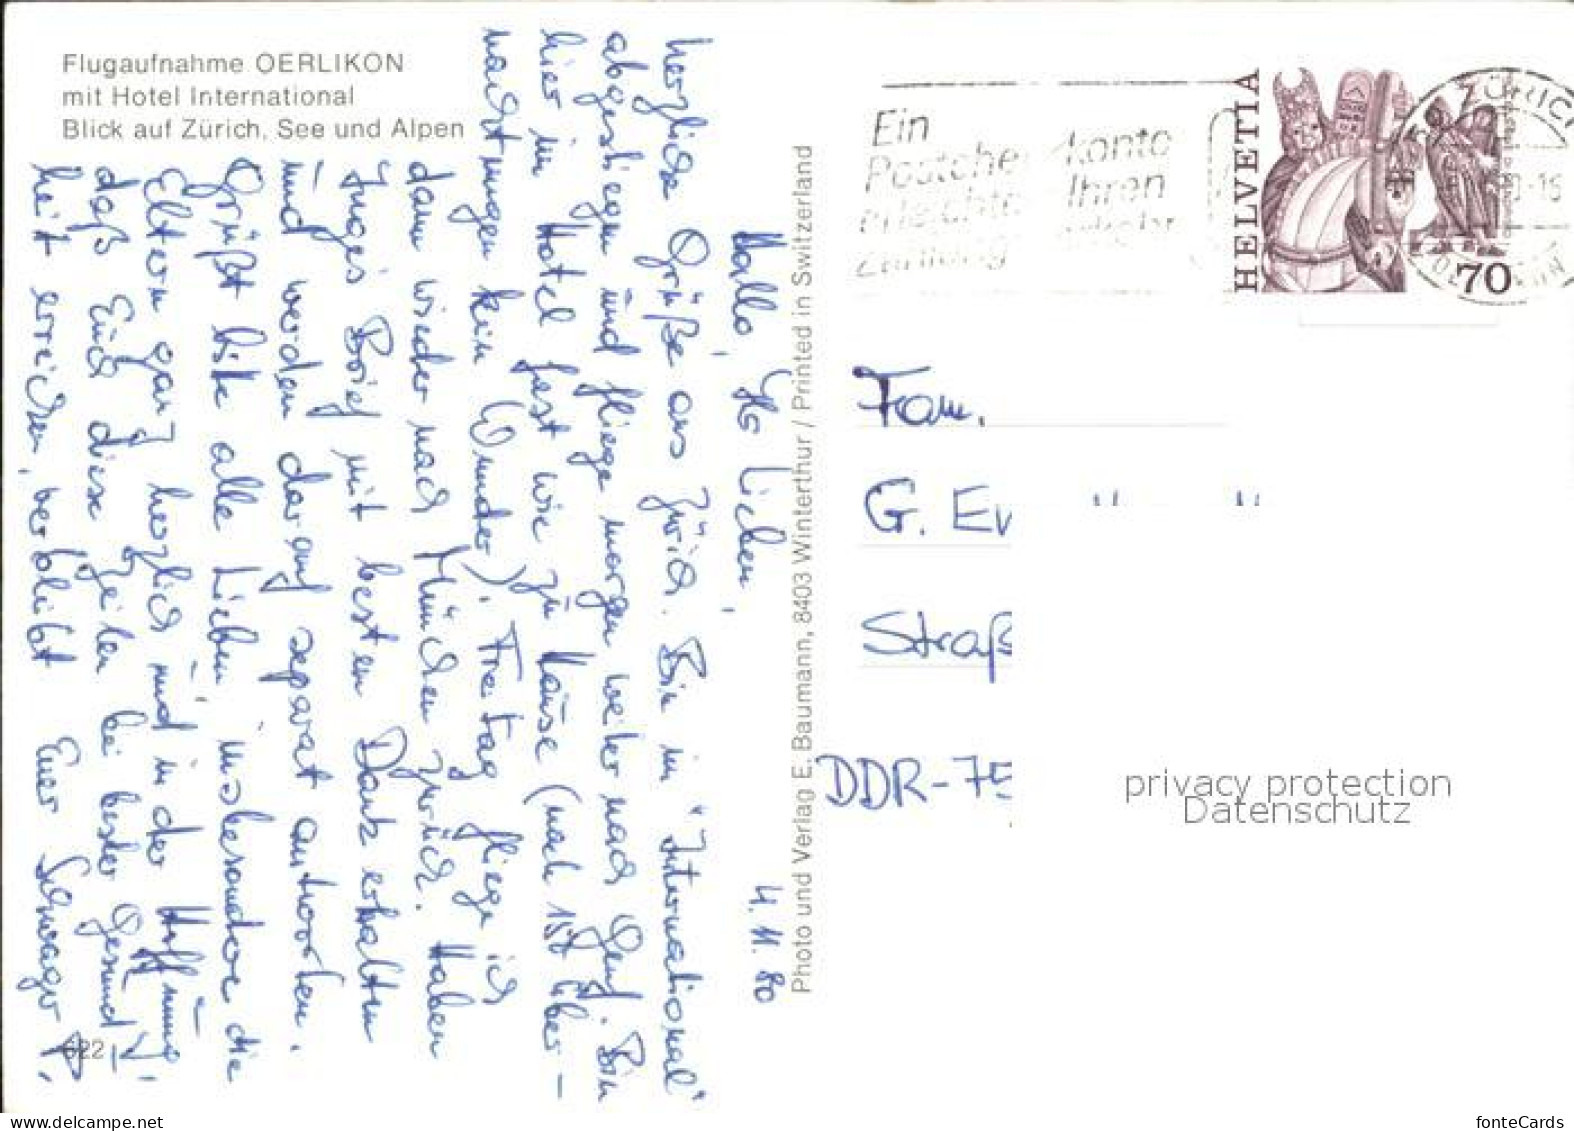 Flugaufnahme OERLIKON
mit Hotel International
Blick auf Zürich, See und Alpen
4.11.80
Hallo, Ihr Lieben,
herzliche Grüße aus Zürich. Bin im "International"
abgestiegen und fliege morgen weiter nach Genf. Bin
hier im Hotel fast wie zu Hause (nach 150 Über-
nachtungen kein Wunder). Freitag fliege ich
dann wieder nach München zurück. Haben
Inges Brief mit bestem Dank erhalten
und werden darauf separat antworten.
Grüßt bitte alle Lieben, insbesondere die
Eltern ganz herzlich und in der Hoffnung,
daß Euch diese Zeilen bei bester Gesund-
heit erreichen, verbleibt Euer Schwager
622
Photo und Verlag E. Baumann, 8403 Winterthur / Printed in Switzerland
Ein
Postche konto
erleichte Ihren
HELVETIA
70
ZÜRICH
Fam.
G. Ev
Straß
DDR-75
privacy protection
Datenschutz
www.delcampe.net
fonteCards